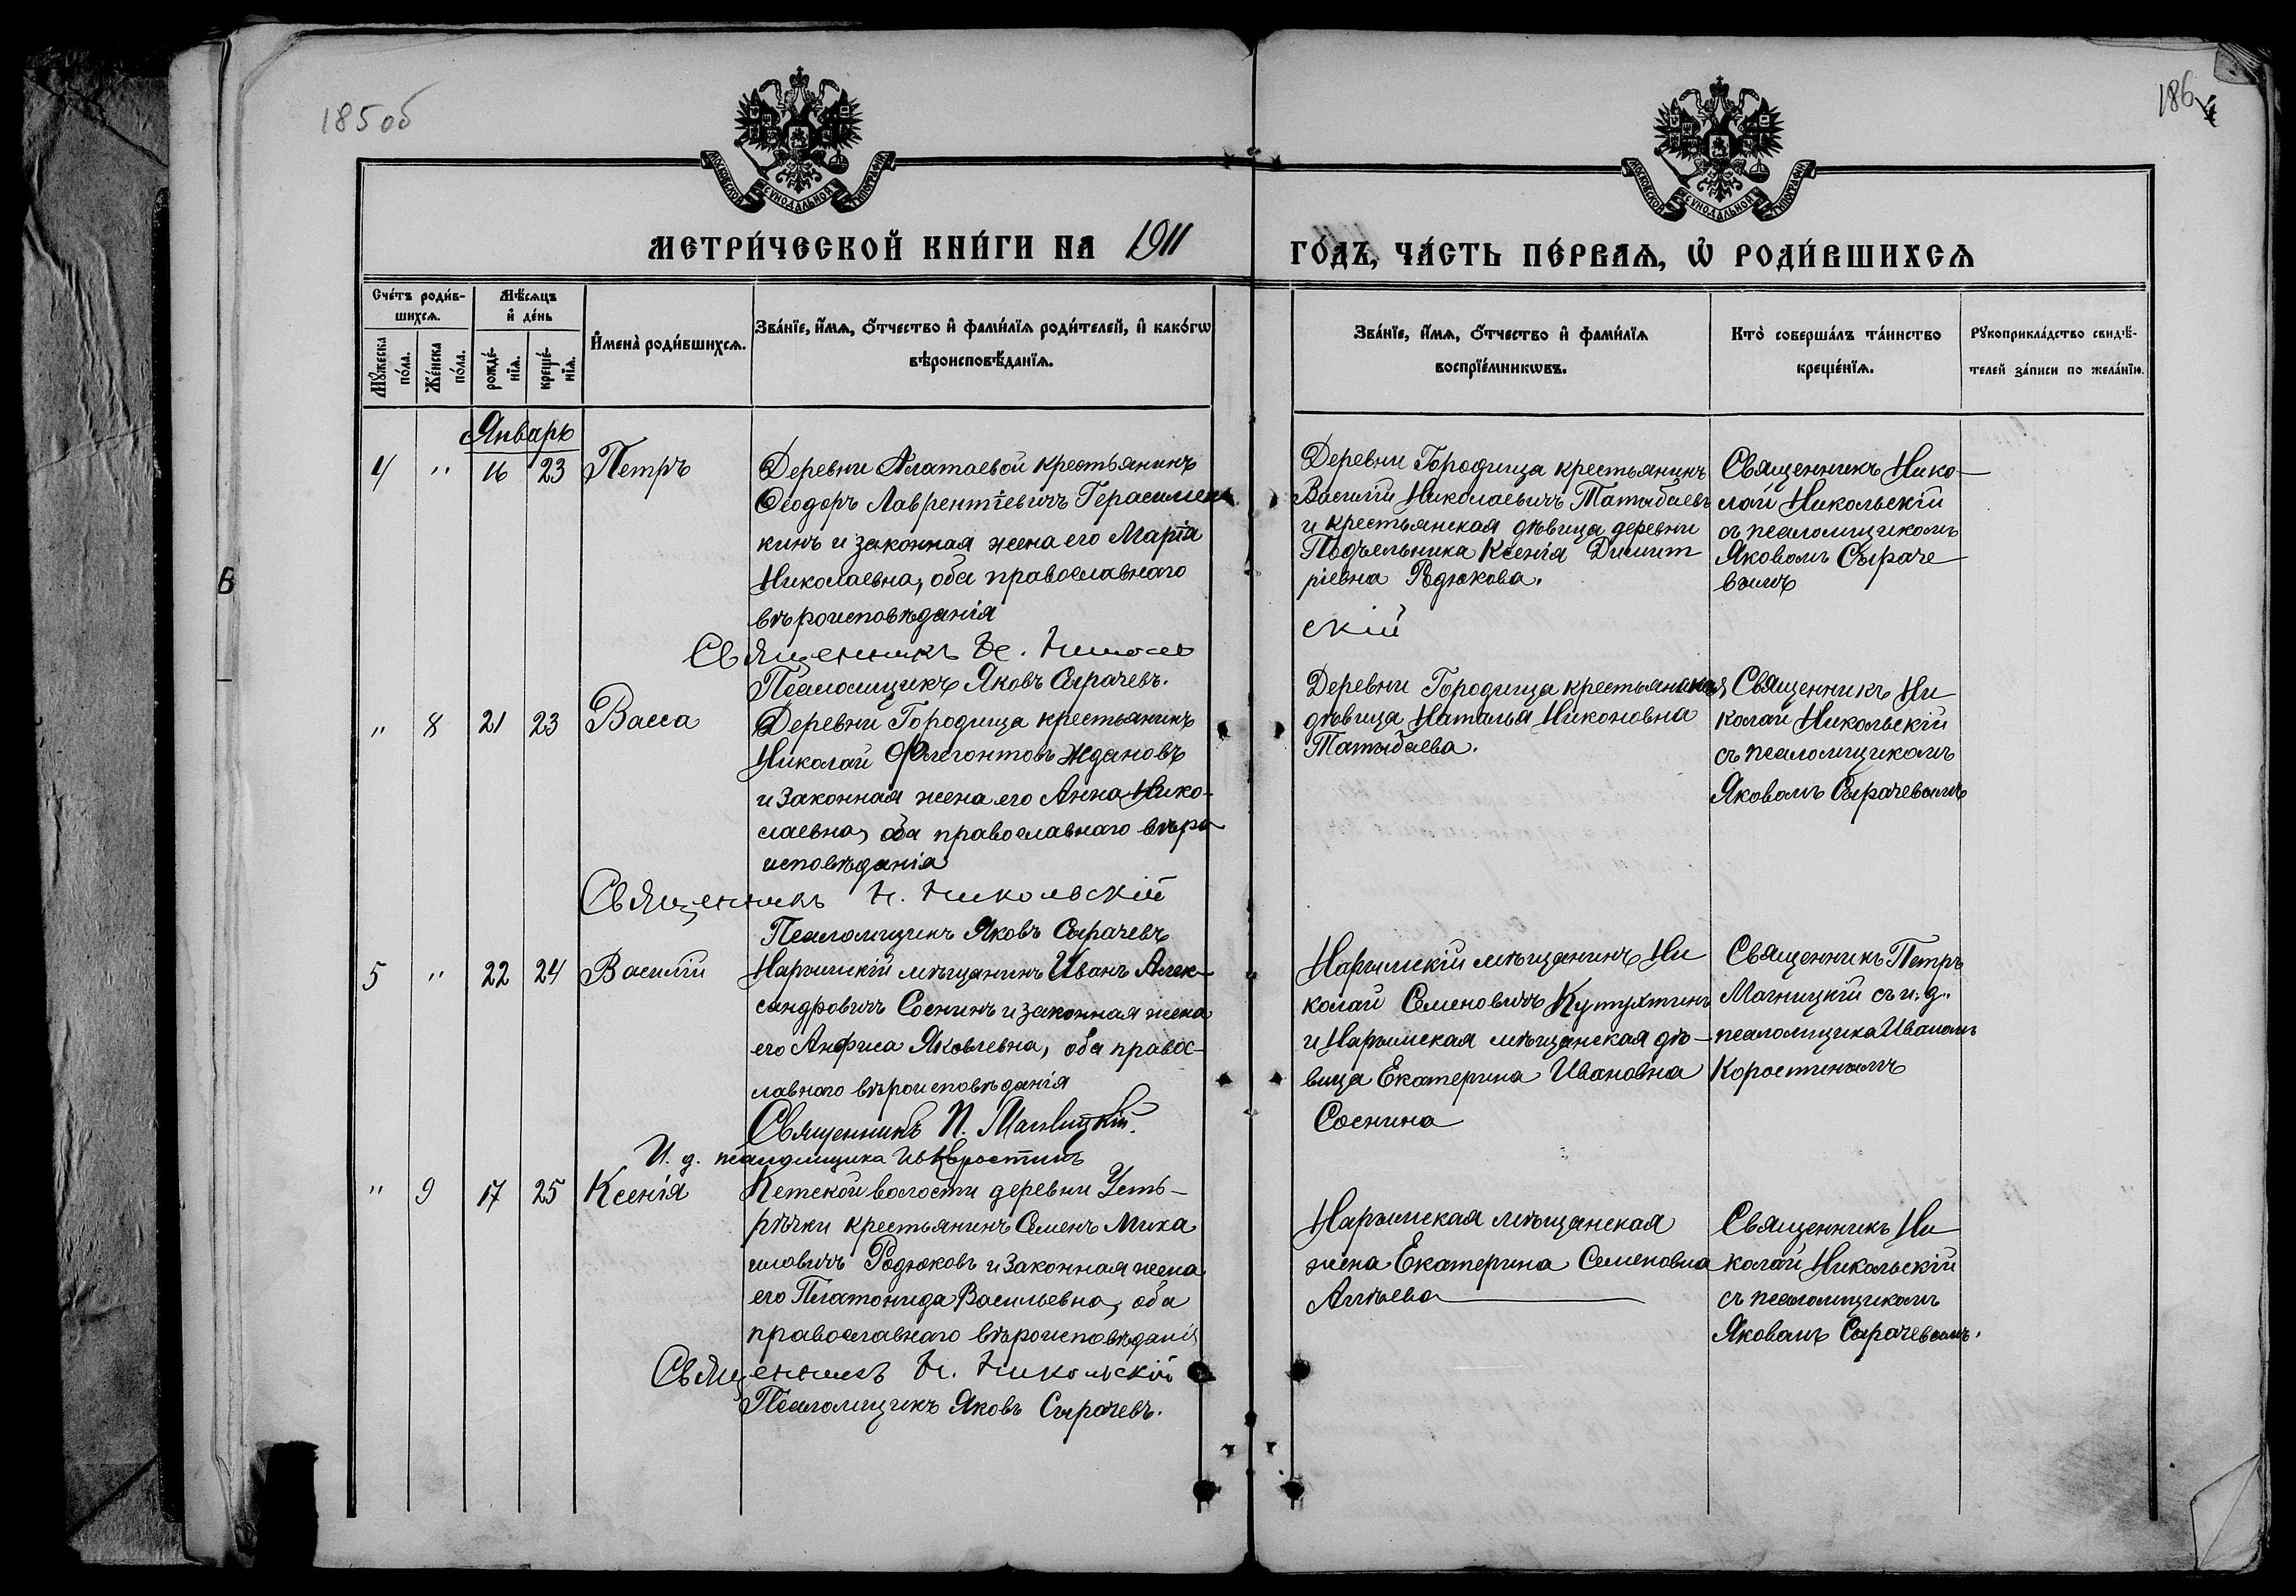 185 об
186
МОСКОВСКОЙ СѴНОДАЛЬНОЙ ТИПОГРАФІИ
МОСКОВСКОЙ СѴНОДАЛЬНОЙ ТИПОГРАФІИ
МЕТРИ́ЧЕСКОЙ КНИ́ГИ НА 1911
ГО́ДЪ, ЧА́СТЬ ПЕ́РВАѦ, Ѽ РОДИ́ВШИХСѦ
Сче́тъ роди́в-
шихсѧ.
Мꙋ́жеска по́ла.
Же́нска по́ла.
Мѣ́сѧцъ
и҆ де́нь
рожде́-
нїѧ.
креще́-
нїѧ.
И҆мена̀ роди́вшихсѧ.
Зва́нїе, и҆́мѧ, ѻ҆́тчество и҆ фами́лїѧ роди́телей, и҆ како́гѡ
вѣроисповѣ́данїѧ.
Зва́нїе, и҆́мѧ, ѻ҆́тчество и҆ фами́лїѧ
воспрїе́мникѡвъ.
Кто̀ соверша́лъ та́инство
креще́нїѧ.
Рꙋкоприкла́дство свидѣ́-
телей за́писи по жела́нїю.
Январь
4 " 16 23 Петръ
Деревни Алатаевой крестьянинъ
Ѳеодоръ Лаврентіевичъ Герасимен
кинъ и законная жена его Марія
Николаевна, оба православнаго
вѣроисповѣданія
Священникъ Н. Николь
скій
Псаломщикъ Яковъ Сырачевъ.
Деревни Городища крестьянинъ
Василій Николаевичъ Татыбаевъ
и крестьянская дѣвица деревни
Подъельника Ксенія Димит
ріевна Родюкова.
Священникъ Нико-
лай Никольскій
съ псаломщикомъ
Яковомъ Сыраче-
вымъ
" 8 21 23 Васса
Деревни Городища крестьянинъ
Николай Флегонтовъ Ждановъ
и законная жена его Анна Нико-
лаевна, оба православнаго вѣро-
исповѣданія
Священникъ Н. Никольскій
Псаломщикъ Яковъ Сырачевъ
Деревни Городища крестьянская
дѣвица Наталья Никоновна
Татыбаева.
Священникъ Ни
колай Никольскій
съ псаломщикомъ
Яковомъ Сырачевымъ
5 " 22 24 Василій
Нарымскій мѣщанинъ Иванъ Алек-
сандровичъ Соснинъ и законная жена
его Анфиса Яковлевна, оба правос-
лавнаго вѣроисповѣданія
Священникъ П. Магницкій.
И. д. псаломщика Ив. Коростинъ
Нарымскій мѣщанинъ Ни
колай Семеновичъ Кутухтинъ
и Нарымская мѣщанская дѣ-
вица Екатерина Ивановна
Соснина
Священникъ Петръ
Магницкій съ и. д.
псаломщика Иваномъ
Коростинымъ
" 9 17 25 Ксенія
Кетской волости деревни Усть-
рѣчки крестьянинъ Семенъ Миха
иловичъ Родюковъ и законная жена
его Платонида Васильевна, оба
православнаго вѣроисповѣданія
Священникъ Н. Никольскій
Псаломщикъ Яковъ Сырачевъ.
Нарымская мѣщанская
жена Екатерина Семеновна
Священникъ Ни
колай Никольскій
съ псаломщикомъ
Яковомъ Сырачевымъ.
В